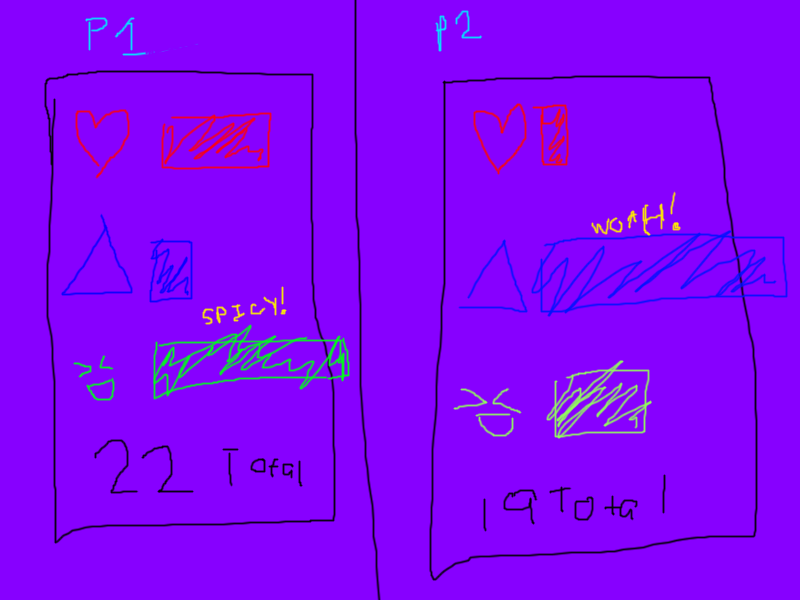 P1
SPICY!
22 Total
P2
WOAH!
19 Total